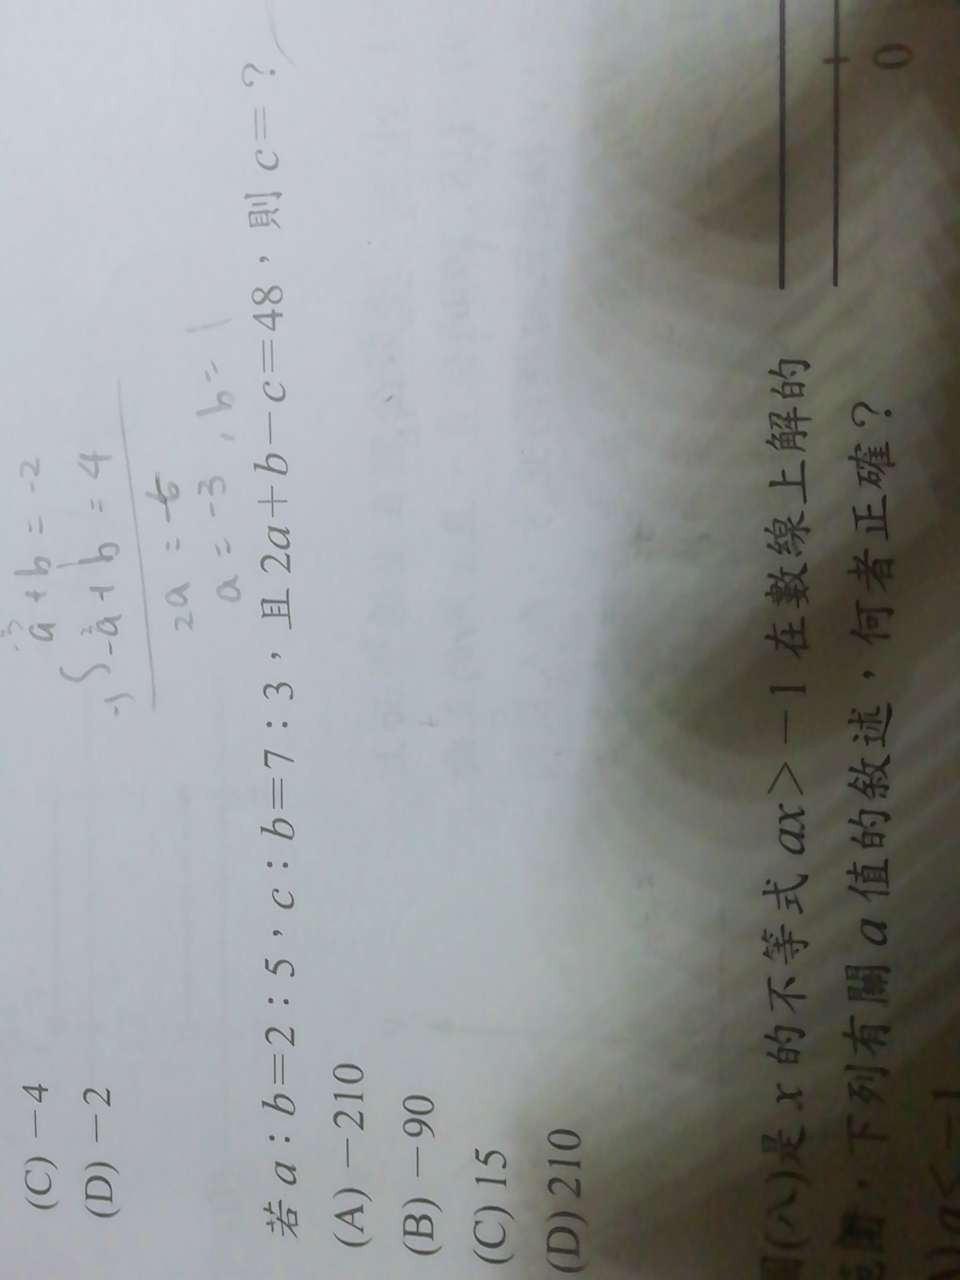 (C) －4
(D) －2
a + b = -2
-a + b = 4
2a = -6
a = -3 , b = 1
若 a：b＝2：5，c：b＝7：3，且 2a＋b－c＝48，則 c＝？
(A) －210
(B) －90
(C) 15
(D) 210
(八)是 x 的不等式 ax＞－1 在數線上解的
，下列有關 a 值的敘述，何者正確？
0